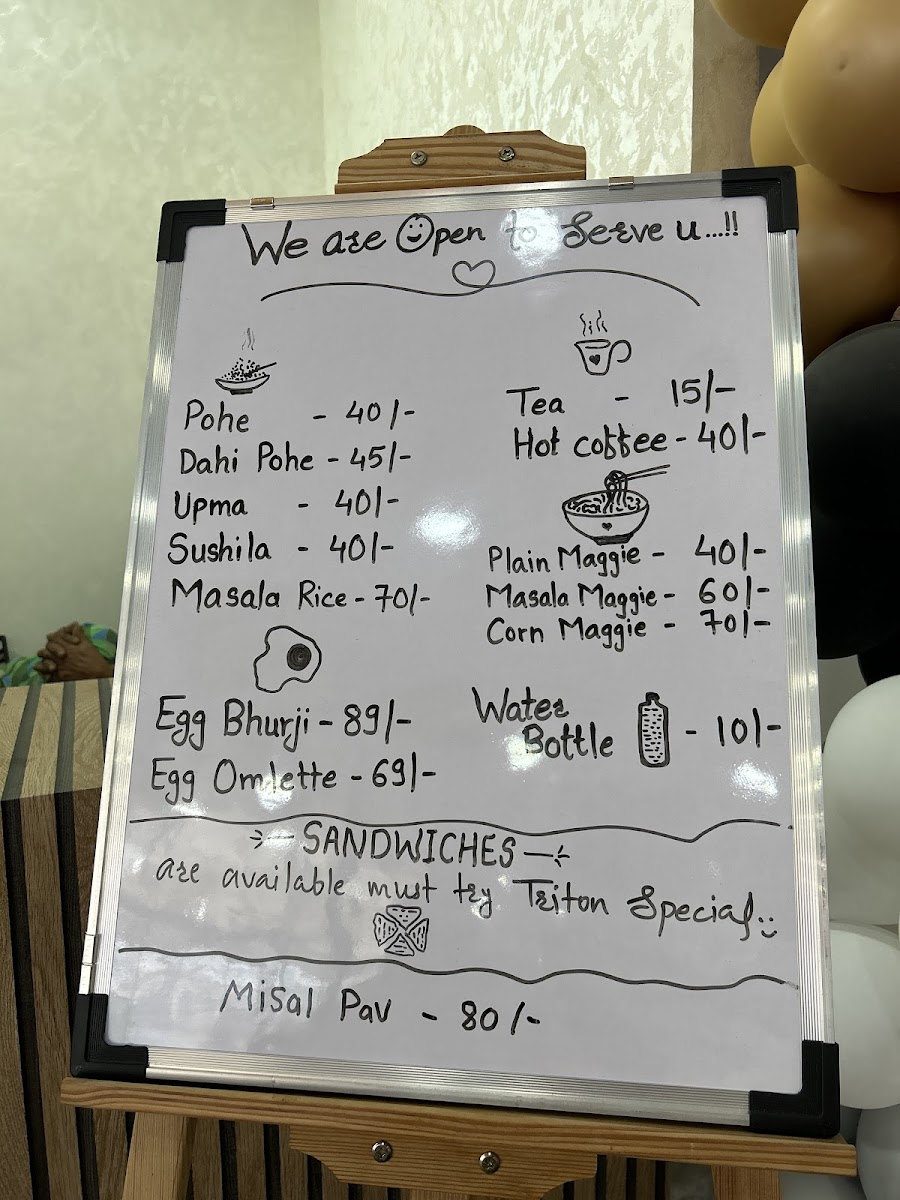 We are Open to Serve u...!!
Pohe - 40/-
Dahi Pohe - 45/-
Upma - 40/-
Sushila - 40/-
Masala Rice - 70/-
Egg Bhurji - 89/-
Egg Omlette - 69/-
Tea - 15/-
Hot coffee - 40/-
Plain Maggie - 40/-
Masala Maggie - 60/-
Corn Maggie - 70/-
Water
Bottle - 10/-
SANDWICHES
are available must try Triton Special
Misal Pav - 80/-